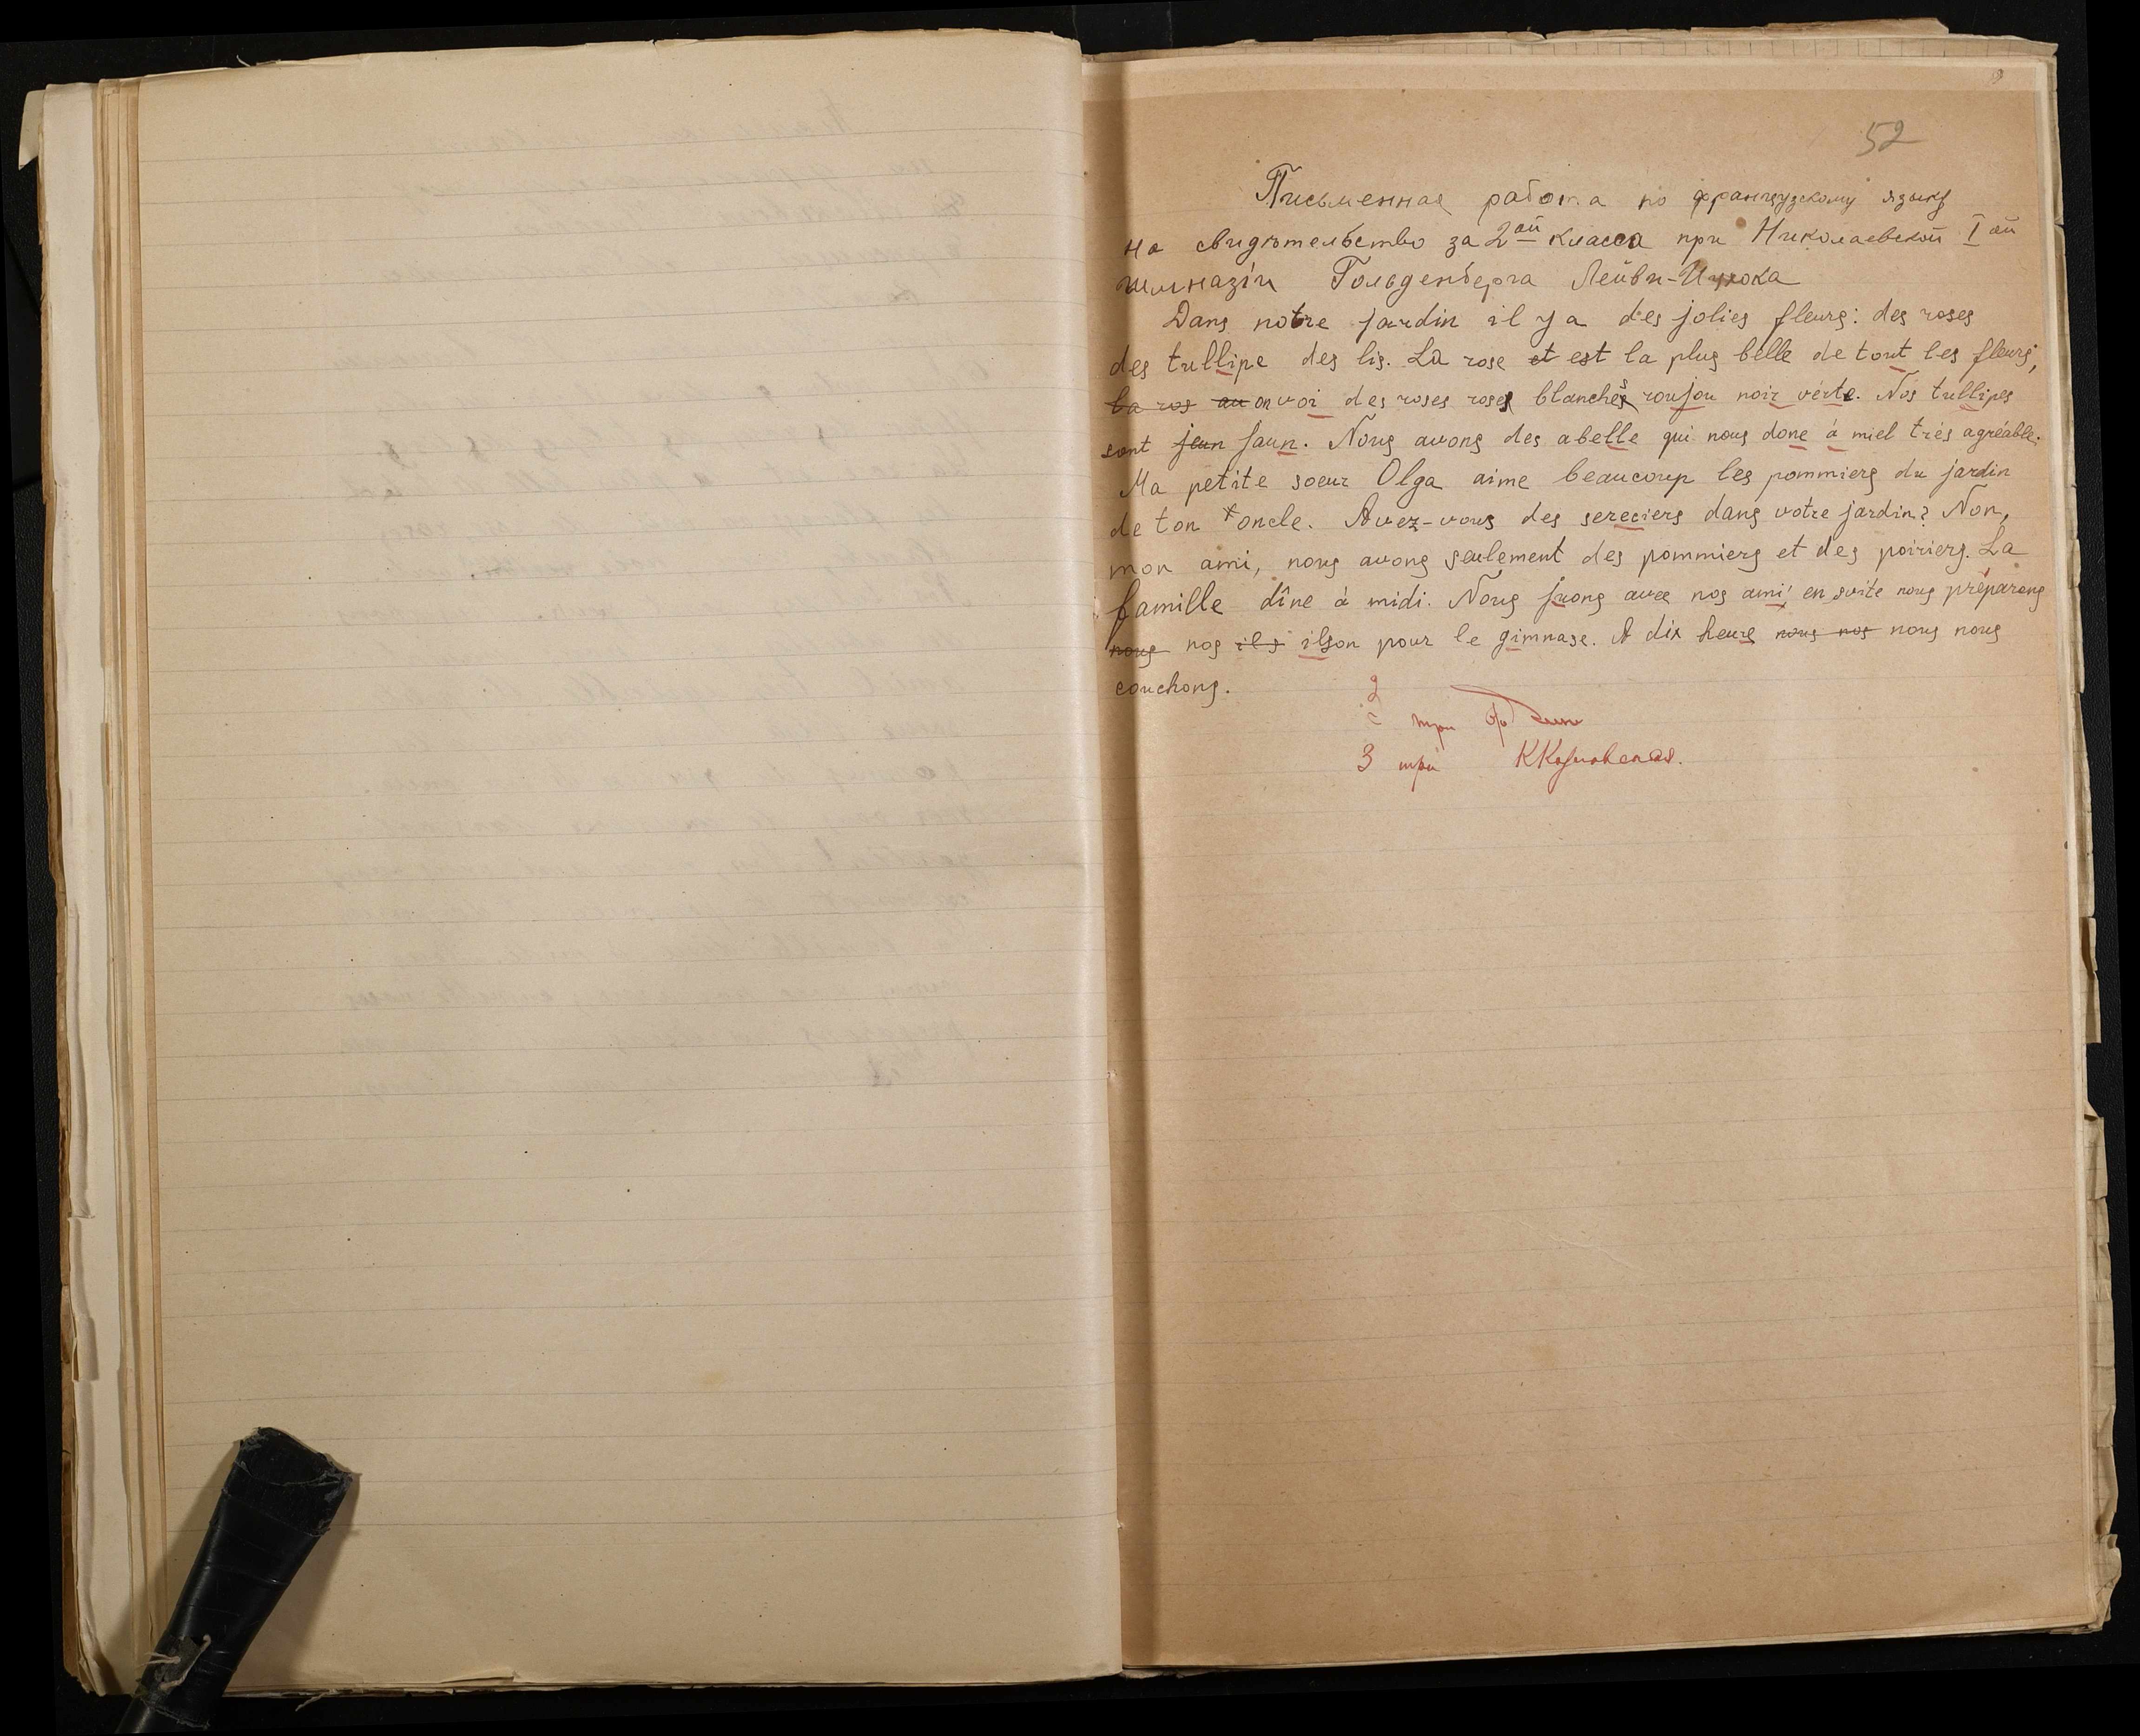 52
Письменная работа по французскому языку
на свидѣтельство за 2ой класса при Николаевской I ой
гимназіи Гольденберга Лейви-Ицхока
Dans notre jardin il y a des jolies fleurs: des roses
des tullipe des lis. La rose et est la plus belle de tout les fleurs,
La ros au on voi des roses roses blanches roujou noir verte. Nos tullipes
sont jeun jaun. Nous avons des abelle qui nous done à miel trés agréable.
Ma petite soeur Olga aime beaucoup les pommiers du jardin
de ton oncle. Avez-vous des sereciers dans votre jardin? Non,
mon ami, nous avons seulement des pommiers et des poiriers. La
famille dîne à midi. Nous juons avec nos ami, en suite nous préparons
nous nos ils ilson pour le gimnase. A dix heure nous nos nous nous
couchons.
2
три
3 три